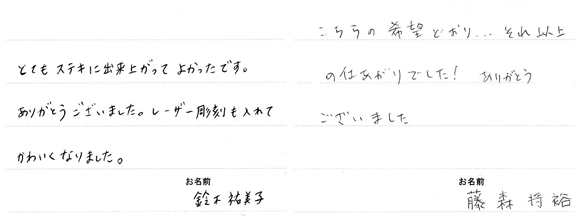 とてもステキに出来上がってよかったです。
ありがとうございました。レーザー彫刻も入れて
かわいくなりました。
お名前
鈴木祐美子
こちらの希望どおり...それ以上
の仕あがりでした! ありがとう
ございました
お名前
藤森将裕